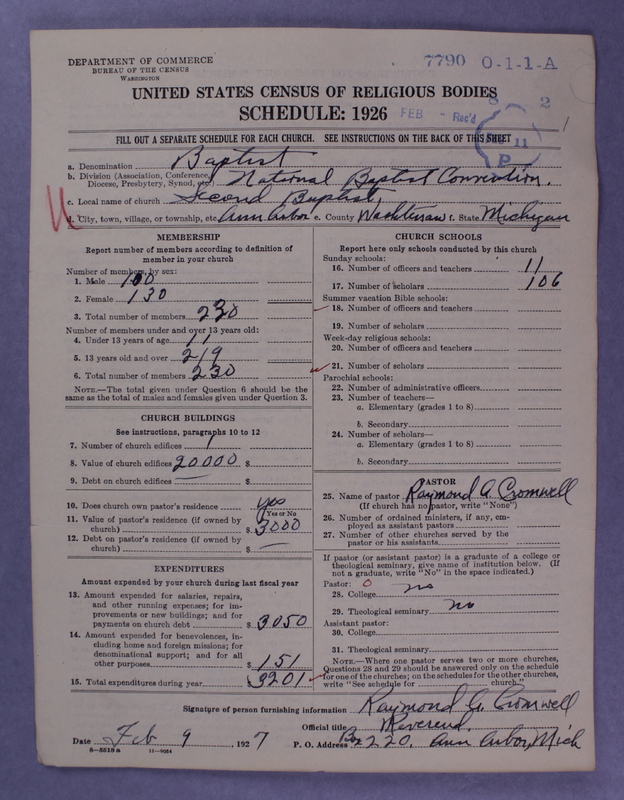 DEPARTMENT OF COMMERCE
BUREAU OF THE CENSUS
WASHINGTON
7790 O-1-1-A
UNITED STATES CENSUS OF RELIGIOUS BODIES
SCHEDULE: 1926
FEB - Rec'd
8 2
11
P
FILL OUT A SEPARATE SCHEDULE FOR EACH CHURCH. SEE INSTRUCTIONS ON THE BACK OF THIS SHEET
a. Denomination Baptist
b. Division (Association, Conference, Diocese, Presbytery, Synod, etc.) National Baptist Convention.
c. Local name of church Second Baptist,
d. City, town, village, or township, etc. Ann Arbor e. County Washtenaw f. State Michigan
MEMBERSHIP
Report number of members according to definition of
member in your church
Number of members, by sex:
1. Male 100
2. Female 130
3. Total number of members 230
Number of members under and over 13 years old:
4. Under 13 years of age 11
5. 13 years old and over 219
6. Total number of members 230
NOTE.—The total given under Question 6 should be the
same as the total of males and females given under Question 3.
CHURCH BUILDINGS
See instructions, paragraphs 10 to 12
7. Number of church edifices 1
8. Value of church edifices 20000 $
9. Debt on church edifices — $
10. Does church own pastor's residence yes
Yes or No
11. Value of pastor's residence (if owned by
church) $ 3000
12. Debt on pastor's residence (if owned by
church) $ —
EXPENDITURES
Amount expended by your church during last fiscal year
13. Amount expended for salaries, repairs,
and other running expenses; for im-
provements or new buildings; and for
payments on church debt $ 3050
14. Amount expended for benevolences, in-
cluding home and foreign missions; for
denominational support; and for all
other purposes $ 151
15. Total expenditures during year 3201
CHURCH SCHOOLS
Report here only schools conducted by this church
Sunday schools:
16. Number of officers and teachers 11
17. Number of scholars 106
Summer vacation Bible schools:
18. Number of officers and teachers
19. Number of scholars
Week-day religious schools:
20. Number of officers and teachers
21. Number of scholars
Parochial schools:
22. Number of administrative officers
23. Number of teachers—
a. Elementary (grades 1 to 8)
b. Secondary
24. Number of scholars—
a. Elementary (grades 1 to 8)
b. Secondary
PASTOR
25. Name of pastor Raymond A. Cromwell
(If church has no pastor, write "None")
26. Number of ordained ministers, if any, em-
ployed as assistant pastors
27. Number of other churches served by the
pastor or his assistants
If pastor (or assistant pastor) is a graduate of a college or
theological seminary, give name of institution below. (If
not a graduate, write "No" in the space indicated.)
Pastor: 0
28. College no
29. Theological seminary no
Assistant pastor:
30. College
31. Theological seminary
NOTE.—Where one pastor serves two or more churches,
Questions 28 and 29 should be answered only on the schedule
for one of the churches; on the schedules for the other churches,
write "See schedule for church."
Signature of person furnishing information Raymond A. Cromwell
Official title Reverend
Date Feb 9, 1927 P. O. Address Box 220, Ann Arbor, Mich
8-5518a 11-9054